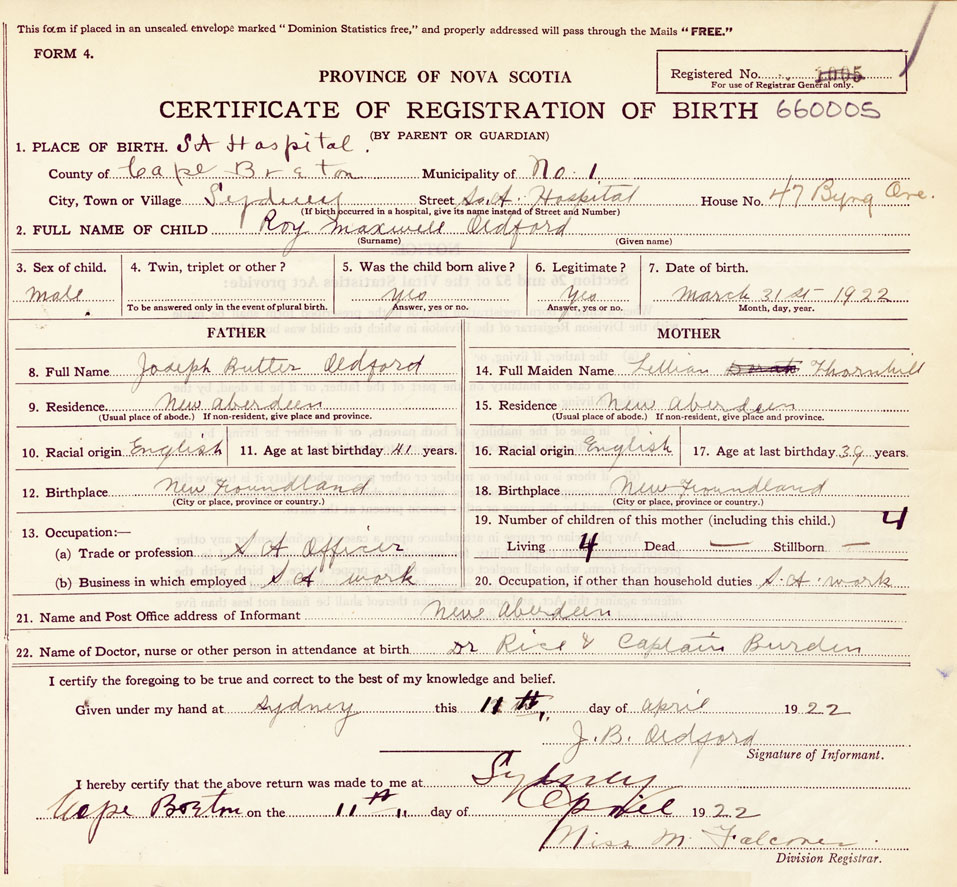 This form if placed in an unsealed envelope marked "Dominion Statistics free," and properly addressed will pass through the Mails "FREE."
FORM 4.
PROVINCE OF NOVA SCOTIA
Registered No. 1005
For use of Registrar General only.
CERTIFICATE OF REGISTRATION OF BIRTH 660005
(BY PARENT OR GUARDIAN)
1. PLACE OF BIRTH. SA Hospital.
County of Cape Breton Municipality of No. 1
City, Town or Village Sydney Street So. A. Hospital House No. 47 Byng Ave.
(If birth occurred in a hospital, give its name instead of Street and Number)
2. FULL NAME OF CHILD Roy Maxwell Oldford
(Surname) (Given name)
3. Sex of child. 4. Twin, triplet or other? 5. Was the child born alive? 6. Legitimate? 7. Date of birth.
Male yes Yes March 31st 1922
To be answered only in the event of plural birth. Answer, yes or no. Answer, yes or no. Month, day, year.
FATHER MOTHER
8. Full Name Joseph Butter Oldford 14. Full Maiden Name Lillian Thornhill
9. Residence. New Aberdeen 15. Residence New Aberdeen
(Usual place of abode.) If non-resident, give place and province. (Usual place of abode.) If non-resident, give place and province.
10. Racial origin English 11. Age at last birthday 41 years. 16. Racial origin English 17. Age at last birthday 39 years.
12. Birthplace New Foundland 18. Birthplace New Foundland
(City or place, province or country.) (City or place, province or country.)
13. Occupation:— 19. Number of children of this mother (including this child.) 4
(a) Trade or profession S A Officer Living 4 Dead — Stillborn —
(b) Business in which employed S A work 20. Occupation, if other than household duties S. A. work
21. Name and Post Office address of Informant New Aberdeen
22. Name of Doctor, nurse or other person in attendance at birth Dr Rice & Captain Burden
I certify the foregoing to be true and correct to the best of my knowledge and belief.
Given under my hand at Sydney this 11th day of April 1922
J. B. Oldford
Signature of Informant.
I hereby certify that the above return was made to me at Sydney
Cape Breton on the 11th day of April 1922
Miss M Falconer
Division Registrar.